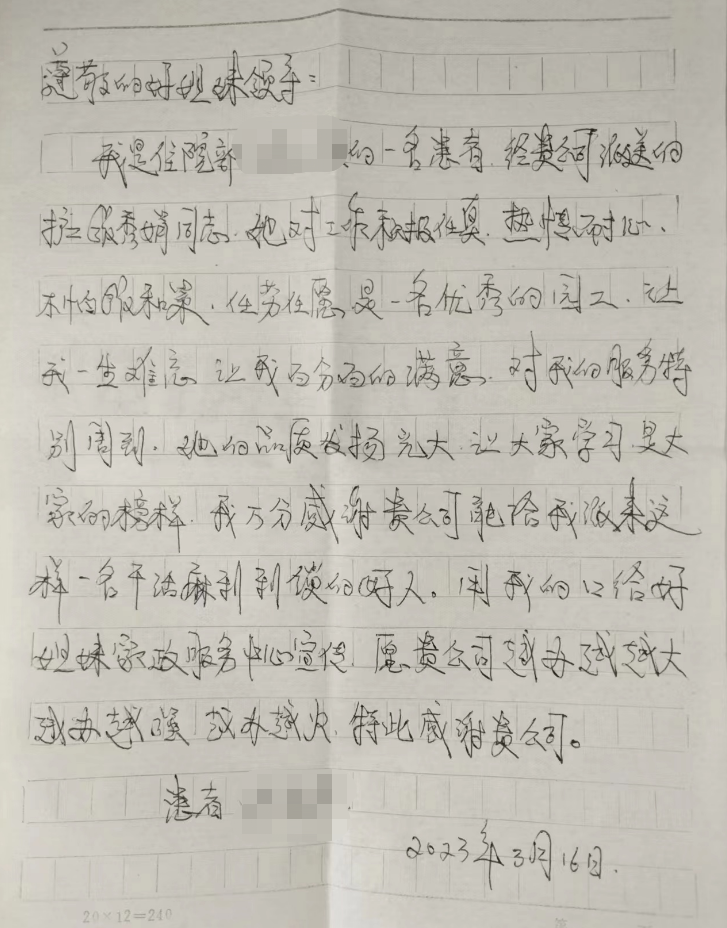 尊敬的好姐妹领导：
我是住院部 的一名患者，经贵公司派送的
护工张秀娟同志，她对工作积极任真，热情耐心、
和蔼，任劳任愿是一名优秀的园工，让
我一生难忘 让我百分百的满意，对我的服务特
别周到，她的品质发扬光大，让大家学习，是大
家的榜样，我万分感谢贵公司能给我派来这
样一名干活麻利利锁的好人。用我的口给好
姐妹家政服务中心宣传，愿贵公司越办越越大
越办越强，越办越火，特此感谢贵公司。
患者
2023年3月16日.
20×12=240